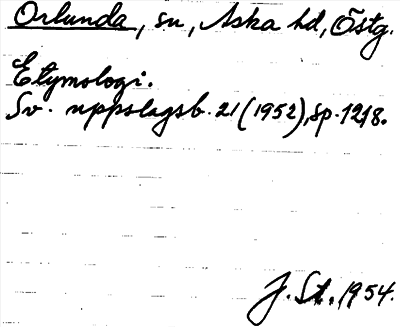 Orlunda, sn, Aska hd, Östg.
Etymologi.
Sv. uppslagsb. 21 (1952), sp. 1218.
J. St., 1954.